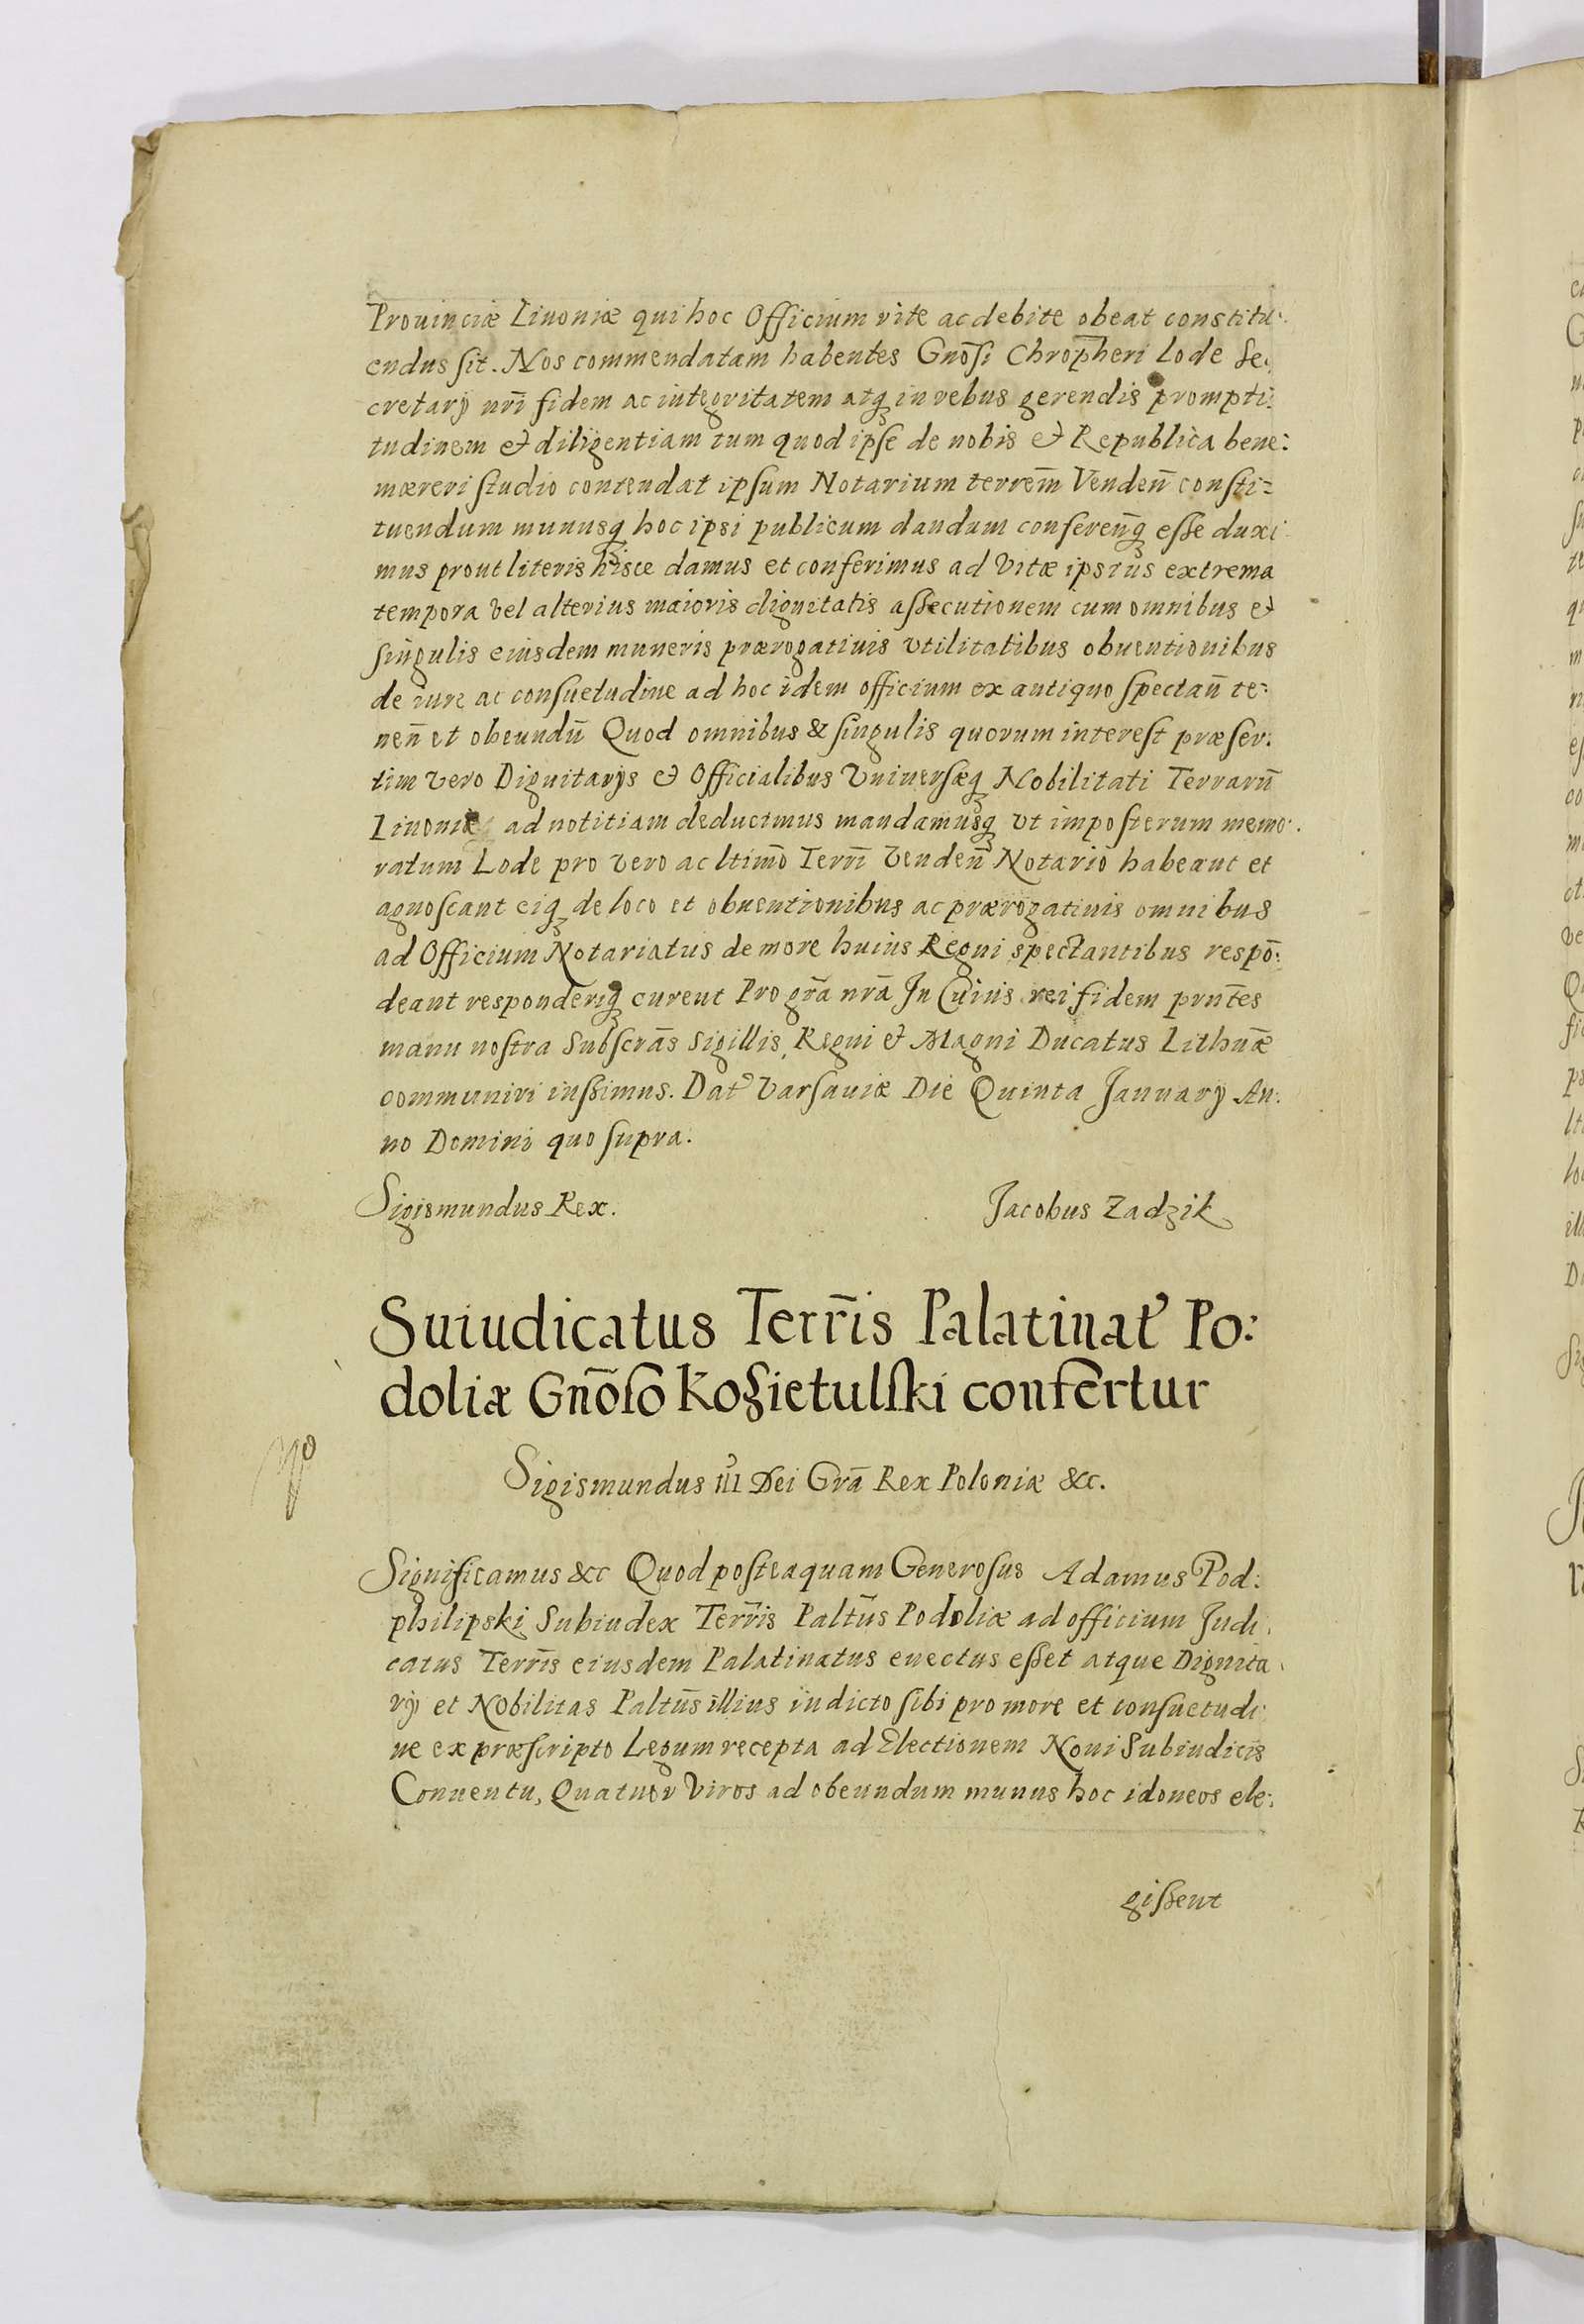 Prouinciæ Liuoniæ qui hoc Officium rite ac debite obeat constitu:
endus sit. Nos commendatam habentes Gnōsi Chrop̄heri Lode Se:
cretarÿ nr̄i fidem ac integritatem atq in rebus gerendis prompti:
tudinem & diligentiam tum quod ipse de nobis & Republica bene:
mæreri studio contendat ipsum Notarium terrem̄ Venden̄ consti=
tuendum munusq hoc ipsi publicum dandum conferen̄q esse duxi:
mus prout literis hisce damus et conferimus ad vitæ ipsius extrema
tempora vel alterius maioris dignitatis assecutionem cum omnibus &
singulis eiusdem muneris prærogatiuis vtilitatibus obuentionibus
de iure ac consuetudine ad hoc idem officium ex antiquo spectan̄ te:
nen̄ et obeundū Quod omnibus & singulis quorum interest præser:
tim vero Dignitarÿs & Officialibus Vniuersæq Nobilitati Terrarū
Liuoniæ ad notitiam deducimus mandamusq vt imposterum memo:
ratum Lode pro vero ac ltimō Terrī Venden̄ Notario habeant et
agnoscant eiq de loco et obuentionibus ac prærogatiuis omnibus
ad Officium Notariatus de more huius Regni spectantibus respō:
deant responderiq curent Pro grā nrā In Cuius rei fidem prnt̄es
manu nostra Subscrās Sigillis, Regni & Magni Ducatus Lithuǣ
communiri iussimus. Dat' Varsauiæ Die Quinta Januarÿ An:
no Domini quo supra.
Sigismundus Rex.
Jacobus Zadzik
Suiudicatus Terr̄is Palatinat' Po:
doliæ Gnōso Kozietulski confertur
Sigismundus III Dei Grā Rex Poloniæ &c.
Significamus &c Quod posteaquam Generosus Adamus Pod:
philipski Subiudex Terr̄is Paltūs Podoliæ ad officium Judi:
catus Terr̄is eiusdem Palatinatus euectus esset atque Dignita:
rÿ et Nobilitas Paltūs illius indicto sibi pro more et consuetudi:
ne ex præscripto Legum recepta ad Electionem Noui Subiudicis
Conuentu, Quatuor Viros ad obeundum munus hoc idoneos ele:
gissent